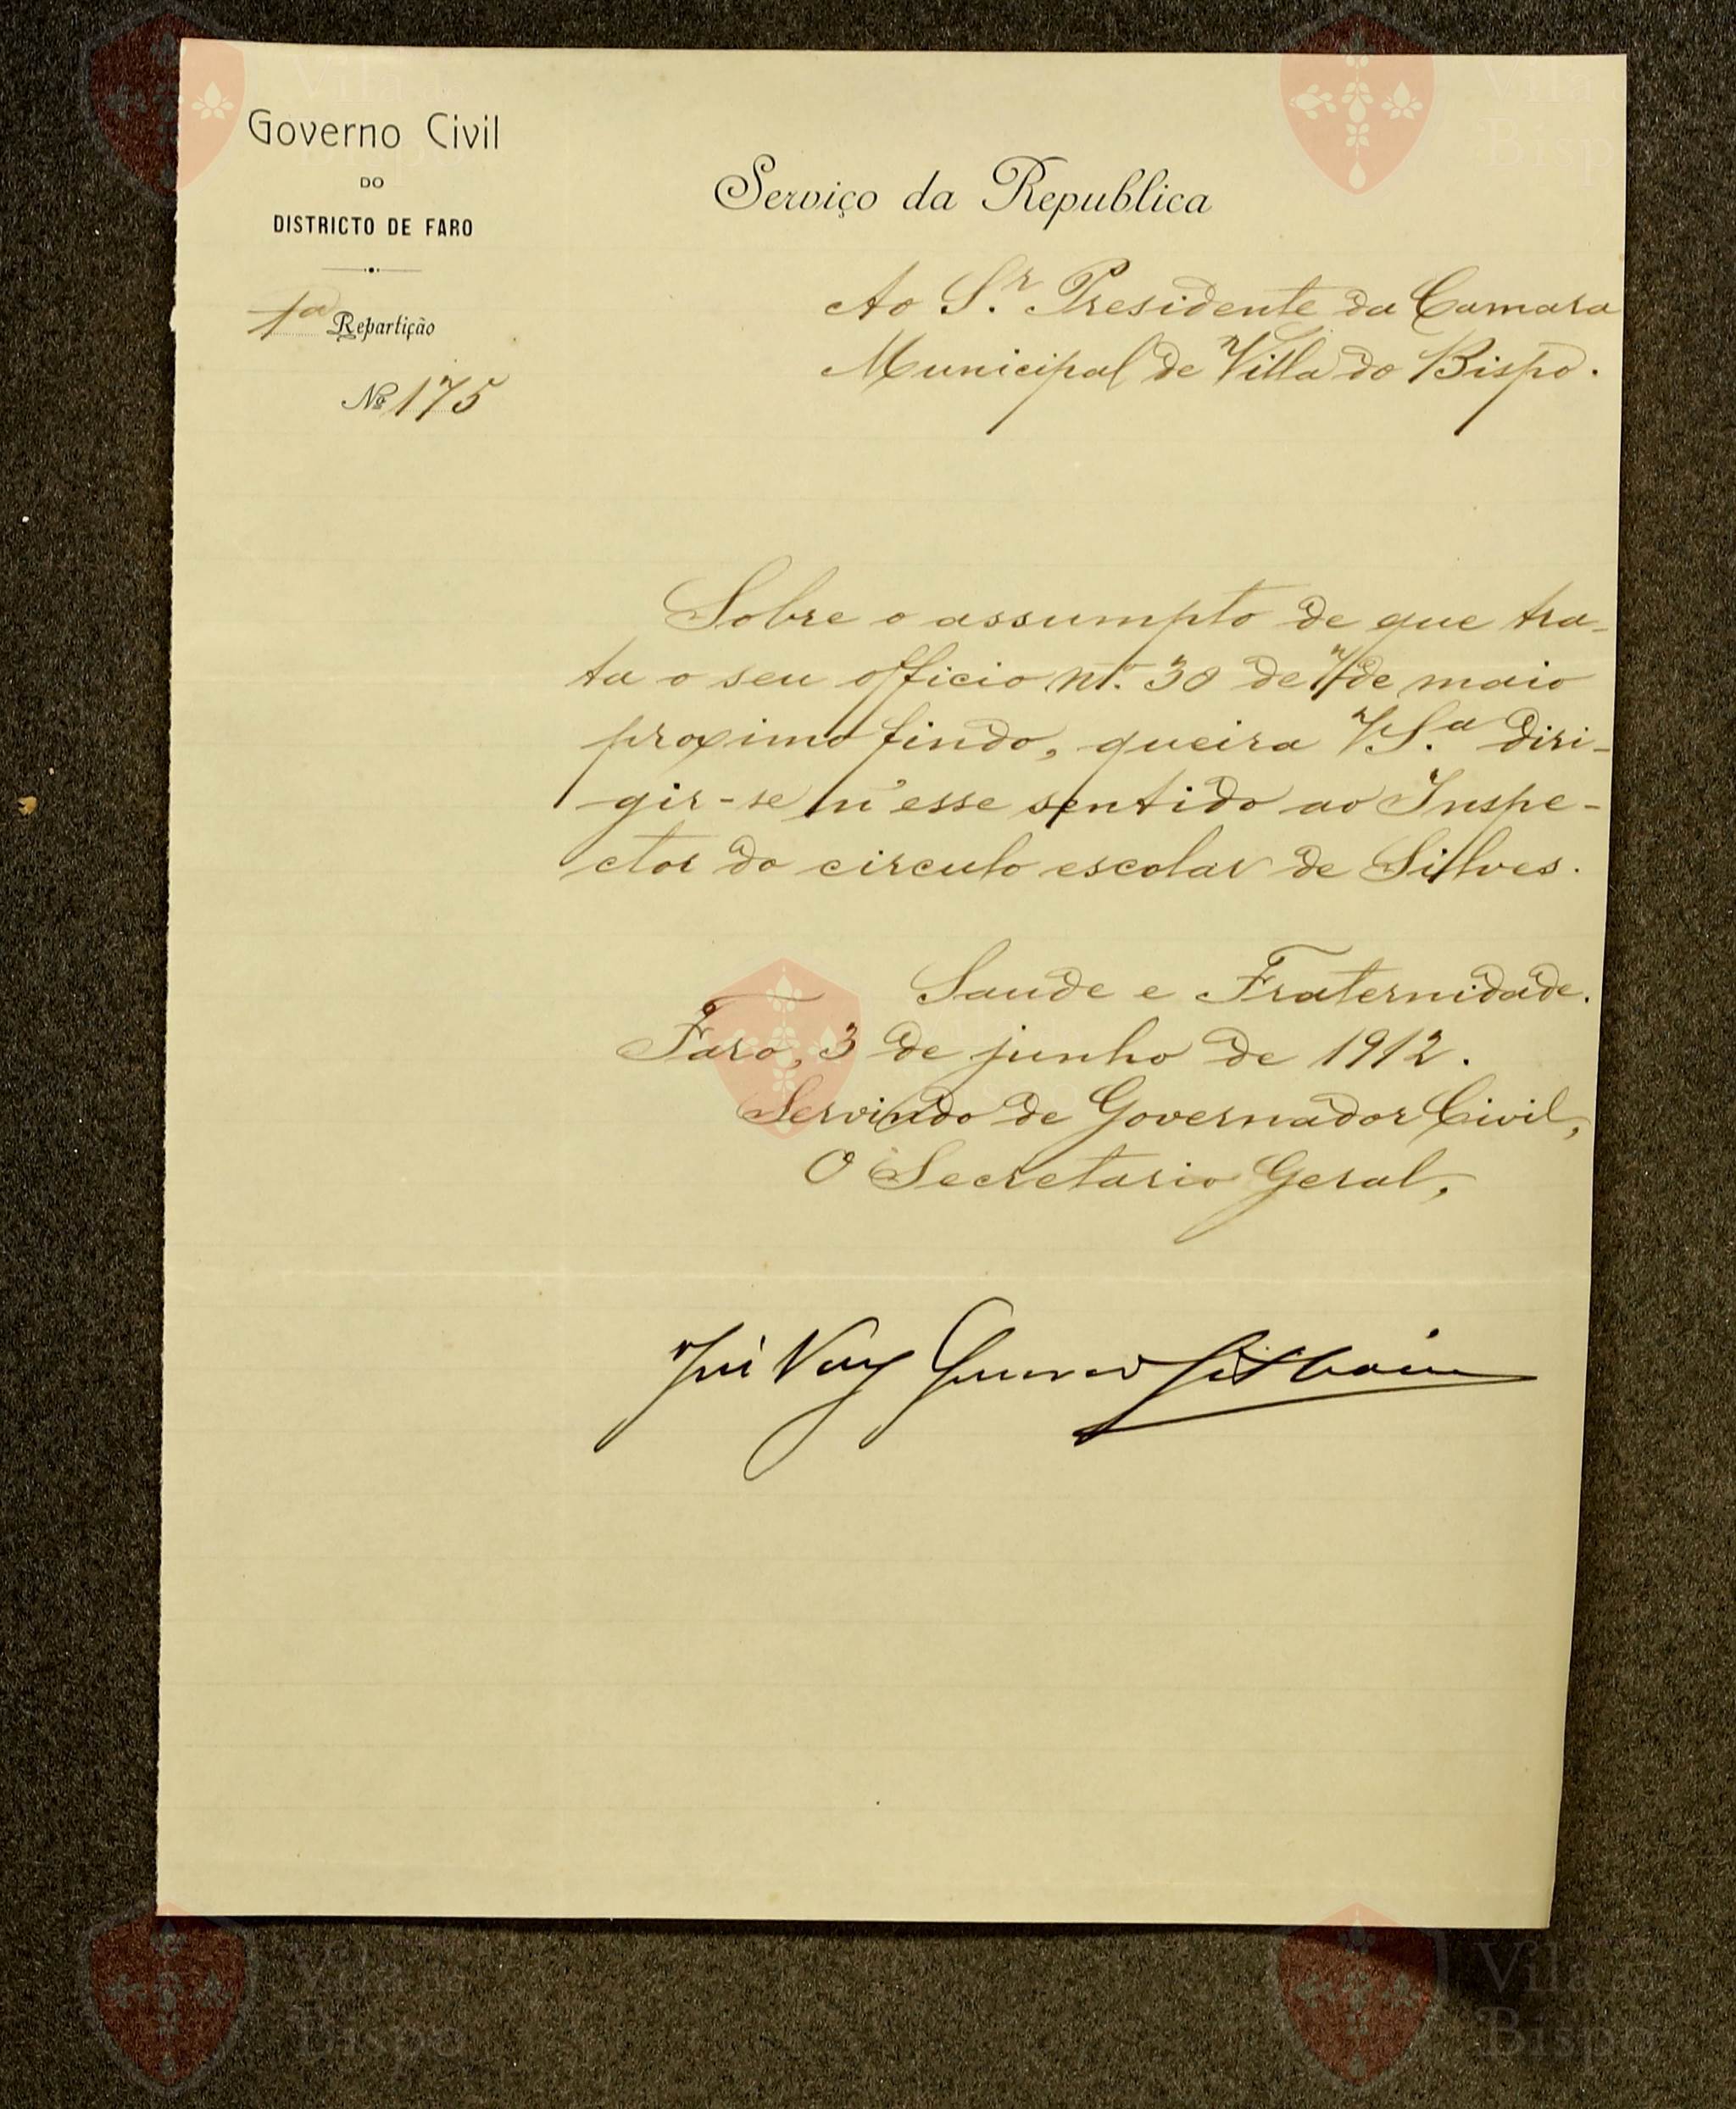 Governo Civil
DO
DISTRICTO DE FARO
1ª Repartição
Nº 175
Serviço da Republica
Ao S.r Presidente da Camara
Municipal de Villa do Bispo.
Sobre o assumpto de que tra-
ta o seu officio n.º 30 de 7 de maio
proximo findo, queira V S.ª diri-
gir-se n'esse sentido ao Inspe-
ctor do circulo escolar de Silves.
Saude e Fraternidade.
Faro, 3 de junho de 1912.
Servindo de Governador Civil,
O Secretario Geral,
José Vaz
Vila do
Bispo